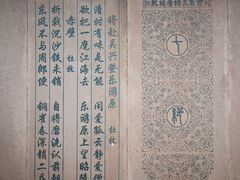 将赴吴兴登乐游原 杜牧
清时有味是无能 闲爱孤云静爱
欲把一麾江海去 乐游原上望昭
赤壁 杜牧
折戟沉沙铁未销 自将磨洗认前
东风不与周郎便 铜雀春深锁二